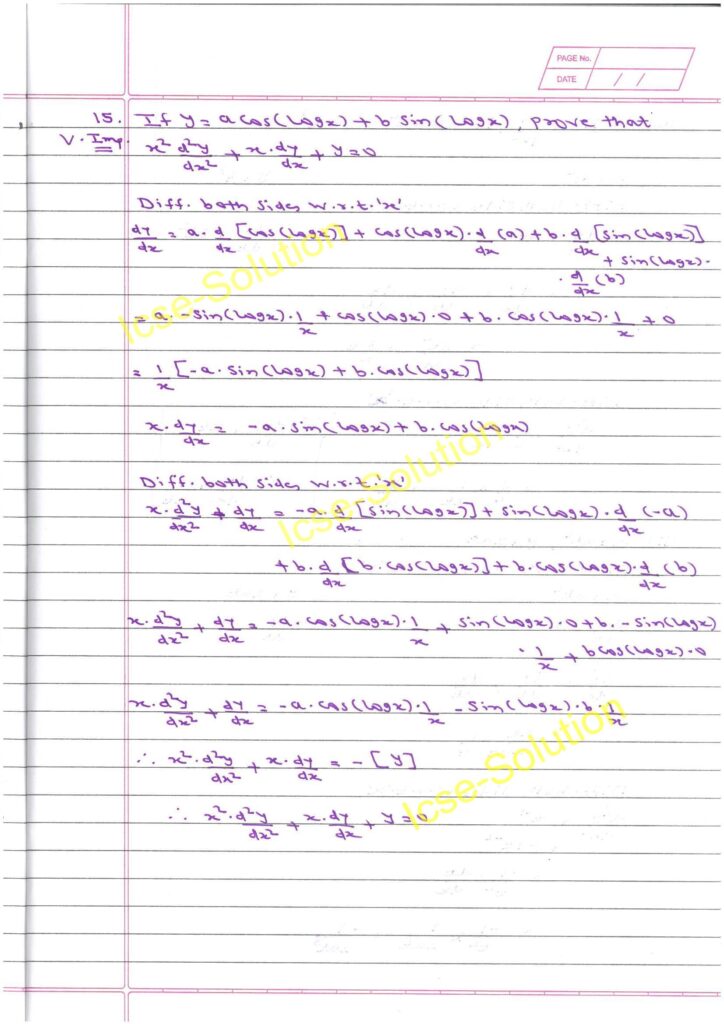 PAGE No.
DATE / /
15. If y = a cos(logx) + b sin(logx), prove that
V. Imp. x² d²y/dx² + x·dy/dx + y=0
Diff. both sides w.r.t.'x'
dy/dx = a·d/dx [cos(logx)] + cos(logx)·d/dx (a) + b·d/dx [sin(logx)]
+ sin(logx)·
·d/dx (b)
= a·-sin(logx)·1/x + cos(logx)·0 + b·cos(logx)·1/x + 0
= 1/x [-a·sin(logx) + b·cos(logx)]
x·dy/dx = -a·sin(logx) + b·cos(logx)
Diff. both sides w.r.t.'x'
x·d²y/dx² + dy/dx = -a·d/dx [sin(logx)] + sin(logx)·d/dx (-a)
+ b·d/dx [b·cos(logx)] + b·cos(logx)·d/dx (b)
x·d²y/dx² + dy/dx = -a·cos(logx)·1/x + sin(logx)·0 + b·-sin(logx)
·1/x + bcos(logx)·0
x·d²y/dx² + dy/dx = -a·cos(logx)·1/x - sin(logx)·b·1/x
∴ x²·d²y/dx² + x·dy/dx = -[y]
∴ x²·d²y/dx² + x·dy/dx + y=0
Icse-Solution
Icse-Solution
Icse-Solution